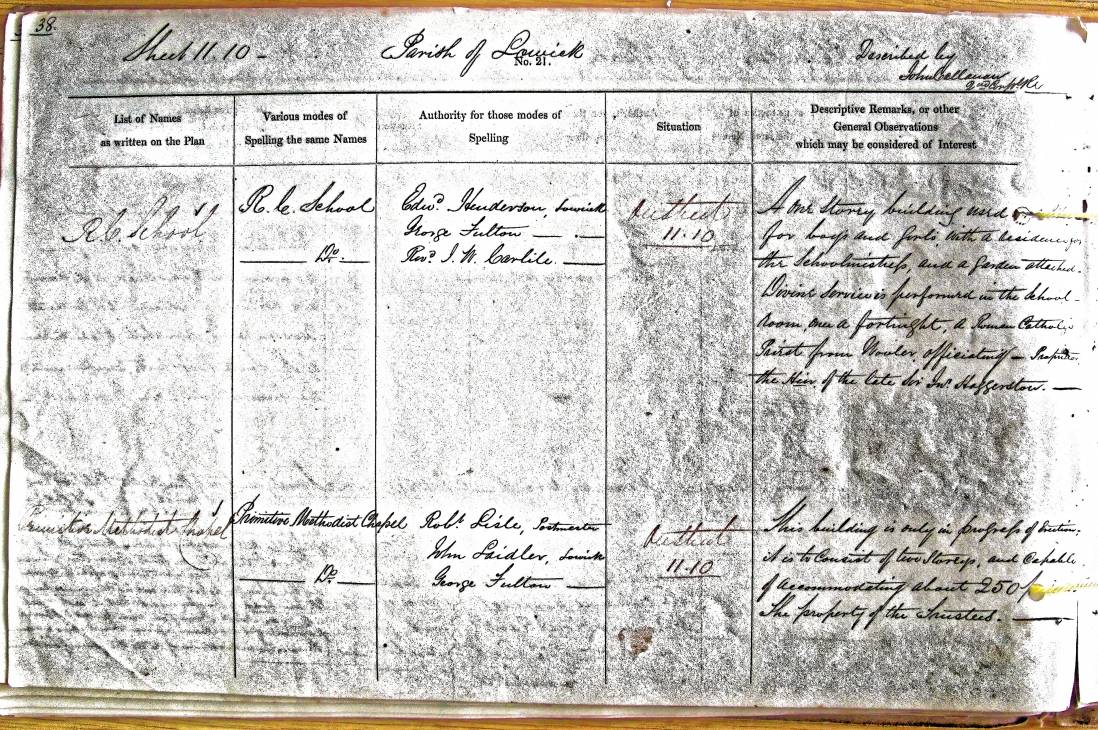 38.
Sheet 11.10 - Parish of Lowick Described by
No. 21. John
2nd Corpl RE
List of Names
as written on the Plan
Various modes of
Spelling the same Names
Authority for those modes of
Spelling
Situation
Descriptive Remarks, or other
General Observations
which may be considered of Interest
R.C. School
R. C. School
Do.
Edwd. Henderson, Lowick
George Fulton
Revd. J. W. Carlile.
11.10
A one Storey building used
for boys and girls with a residence for
the Schoolmistress, and a garden attached.
Divine Service is performed in the School-
room once a fortnight, a Roman Catholic
Priest from Wooler officiating - Proprietor
the Heir of the late Sir Jno. Haggerston.
Primitive Methodist Chapel
Primitive Methodist Chapel
Do
Robt. Lisle, Postmaster
John Laidler, Lowick
George Fulton
11.10
This building is only in progress of Erection,
it is to Consist of two Storeys, and Capable
of accommodating about 250
The property of the Trustees.